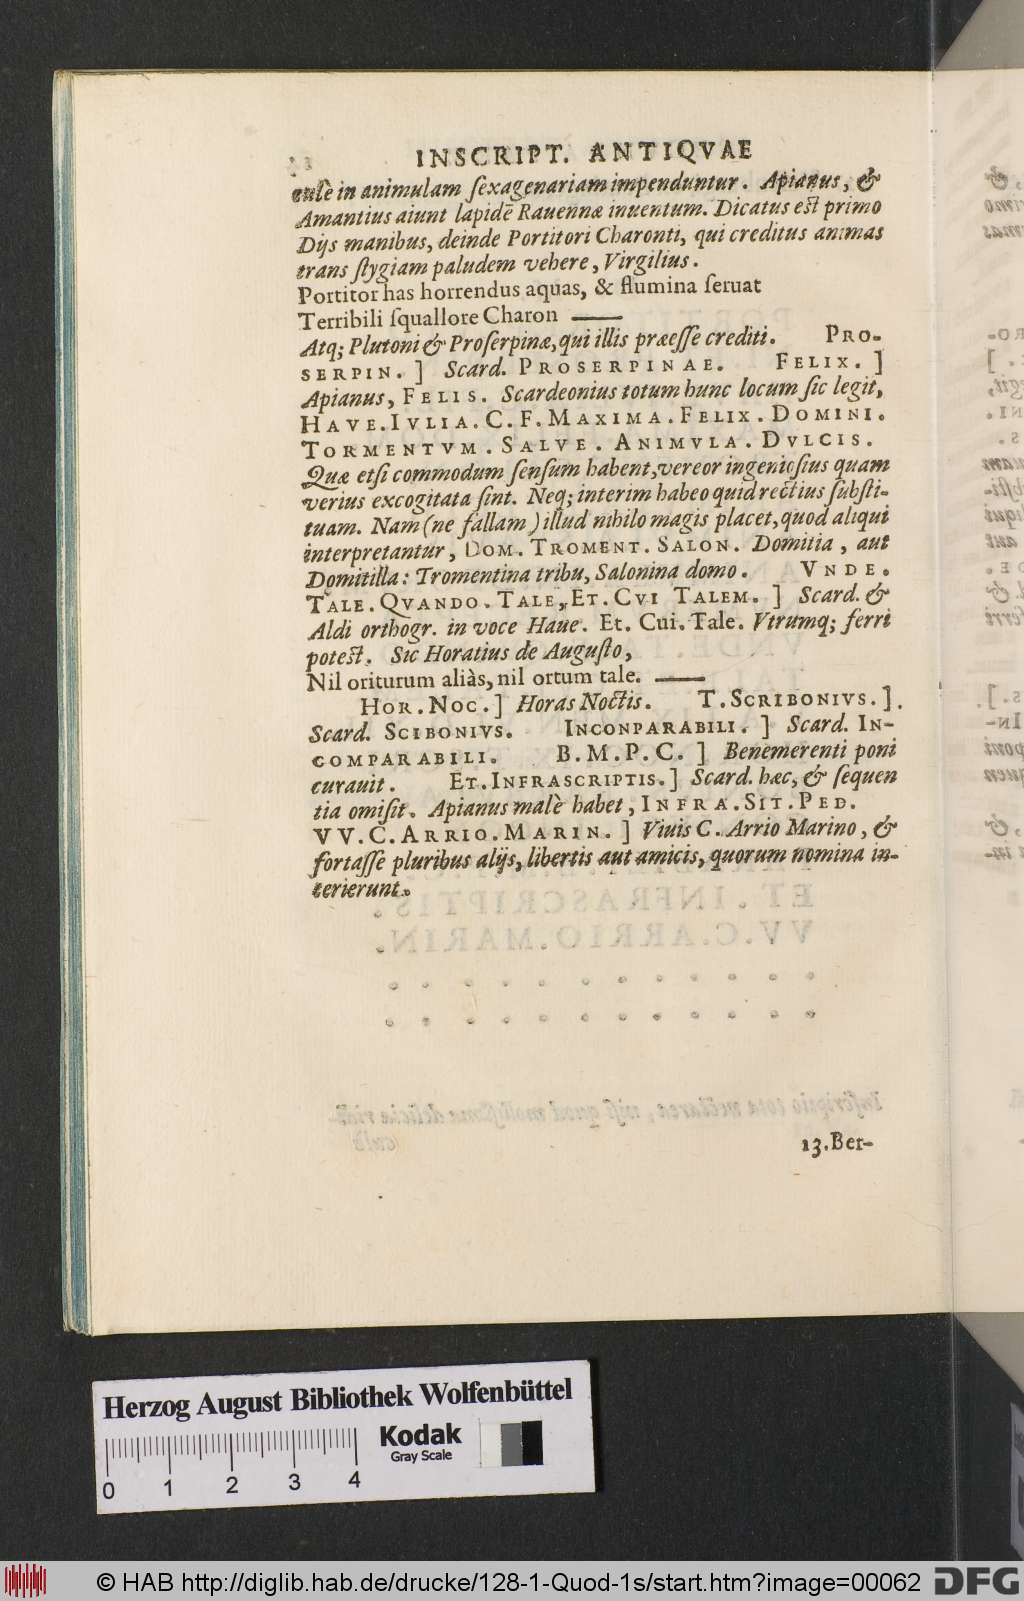 INSCRIPT. ANTIQVAE
culè in animulam sexagenariam impenduntur. Apianus, &
Amantius aiunt lapidē Rauennæ inuentum. Dicatus est primo
Dijs manibus, deinde Portitori Charonti, qui creditus animas
trans stygiam paludem vehere, Virgilius.
Portitor has horrendus aquas, & flumina seruat
Terribili squallore Charon ——
Atq; Plutoni & Proserpinæ, qui illis præesse crediti. PRO-
SERPIN. ] Scard. PROSERPINAE. FELIX. ]
Apianus, FELIS. Scardeonius totum hunc locum sic legit,
HAVE.IVLIA.C.F.MAXIMA.FELIX.DOMINI.
TORMENTVM.SALVE.ANIMVLA.DVLCIS.
Quæ etsi commodum sensum habent, vereor ingeniosius quam
verius excogitata sint. Neq; interim habeo quid rectius substi-
tuam. Nam (ne fallam) illud nihilo magis placet, quod aliqui
interpretantur, DOM. TROMENT. SALON. Domitia, aut
Domitilla: Tromentina tribu, Salonina domo. VNDE.
TALE.QVANDO.TALE,ET.CVI TALEM. ] Scard. &
Aldi orthogr. in voce Haue. Et. Cui. Tale. Vtrumq; ferri
potest. Sic Horatius de Augusto,
Nil oriturum aliàs, nil ortum tale. ——
HOR.NOC.] Horas Noctis. T.SCRIBONIVS.].
Scard. SCIBONIVS. INCONPARABILI. ] Scard. IN-
COMPARABILI. B.M.P.C. ] Benemerenti poni
curauit. ET.INFRASCRIPTIS.] Scard. hæc, & sequen
tia omisit. Apianus malè habet, INFRA.SIT.PED.
VV.C.ARRIO.MARIN. ] Viuis C. Arrio Marino, &
fortasse pluribus alijs, libertis aut amicis, quorum nomina in-
terierunt.
13.Ber-
Herzog August Bibliothek Wolfenbüttel
Kodak
Gray Scale
0 1 2 3 4
© HAB http://diglib.hab.de/drucke/128-1-Quod-1s/start.htm?image=00062
DFG